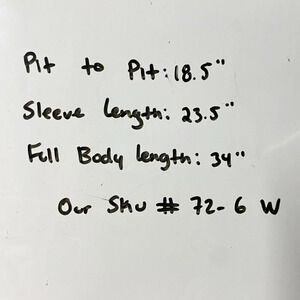 Pit to Pit: 18.5"
Sleeve length: 23.5"
Full Body length: 34"
Our Sku # 72-6 W